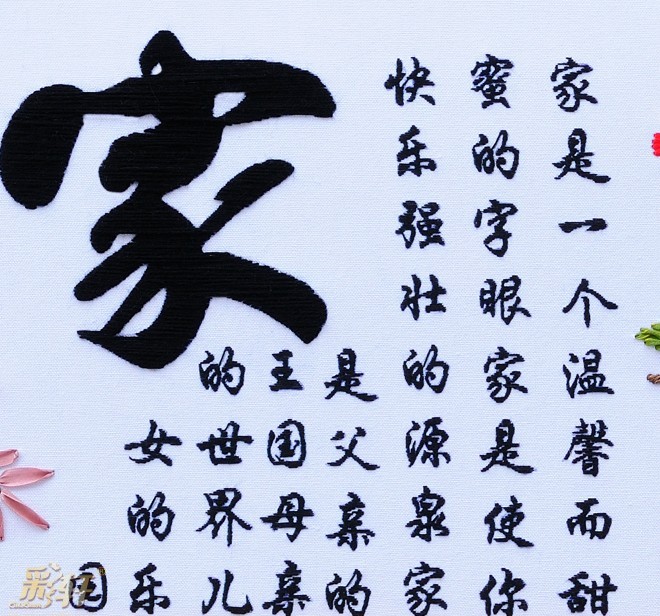 家
家是一个温馨而甜
蜜的字眼家是使你
快乐强壮的源泉家
是父亲的
王国母亲
的世界儿
女的乐
园
彩轩